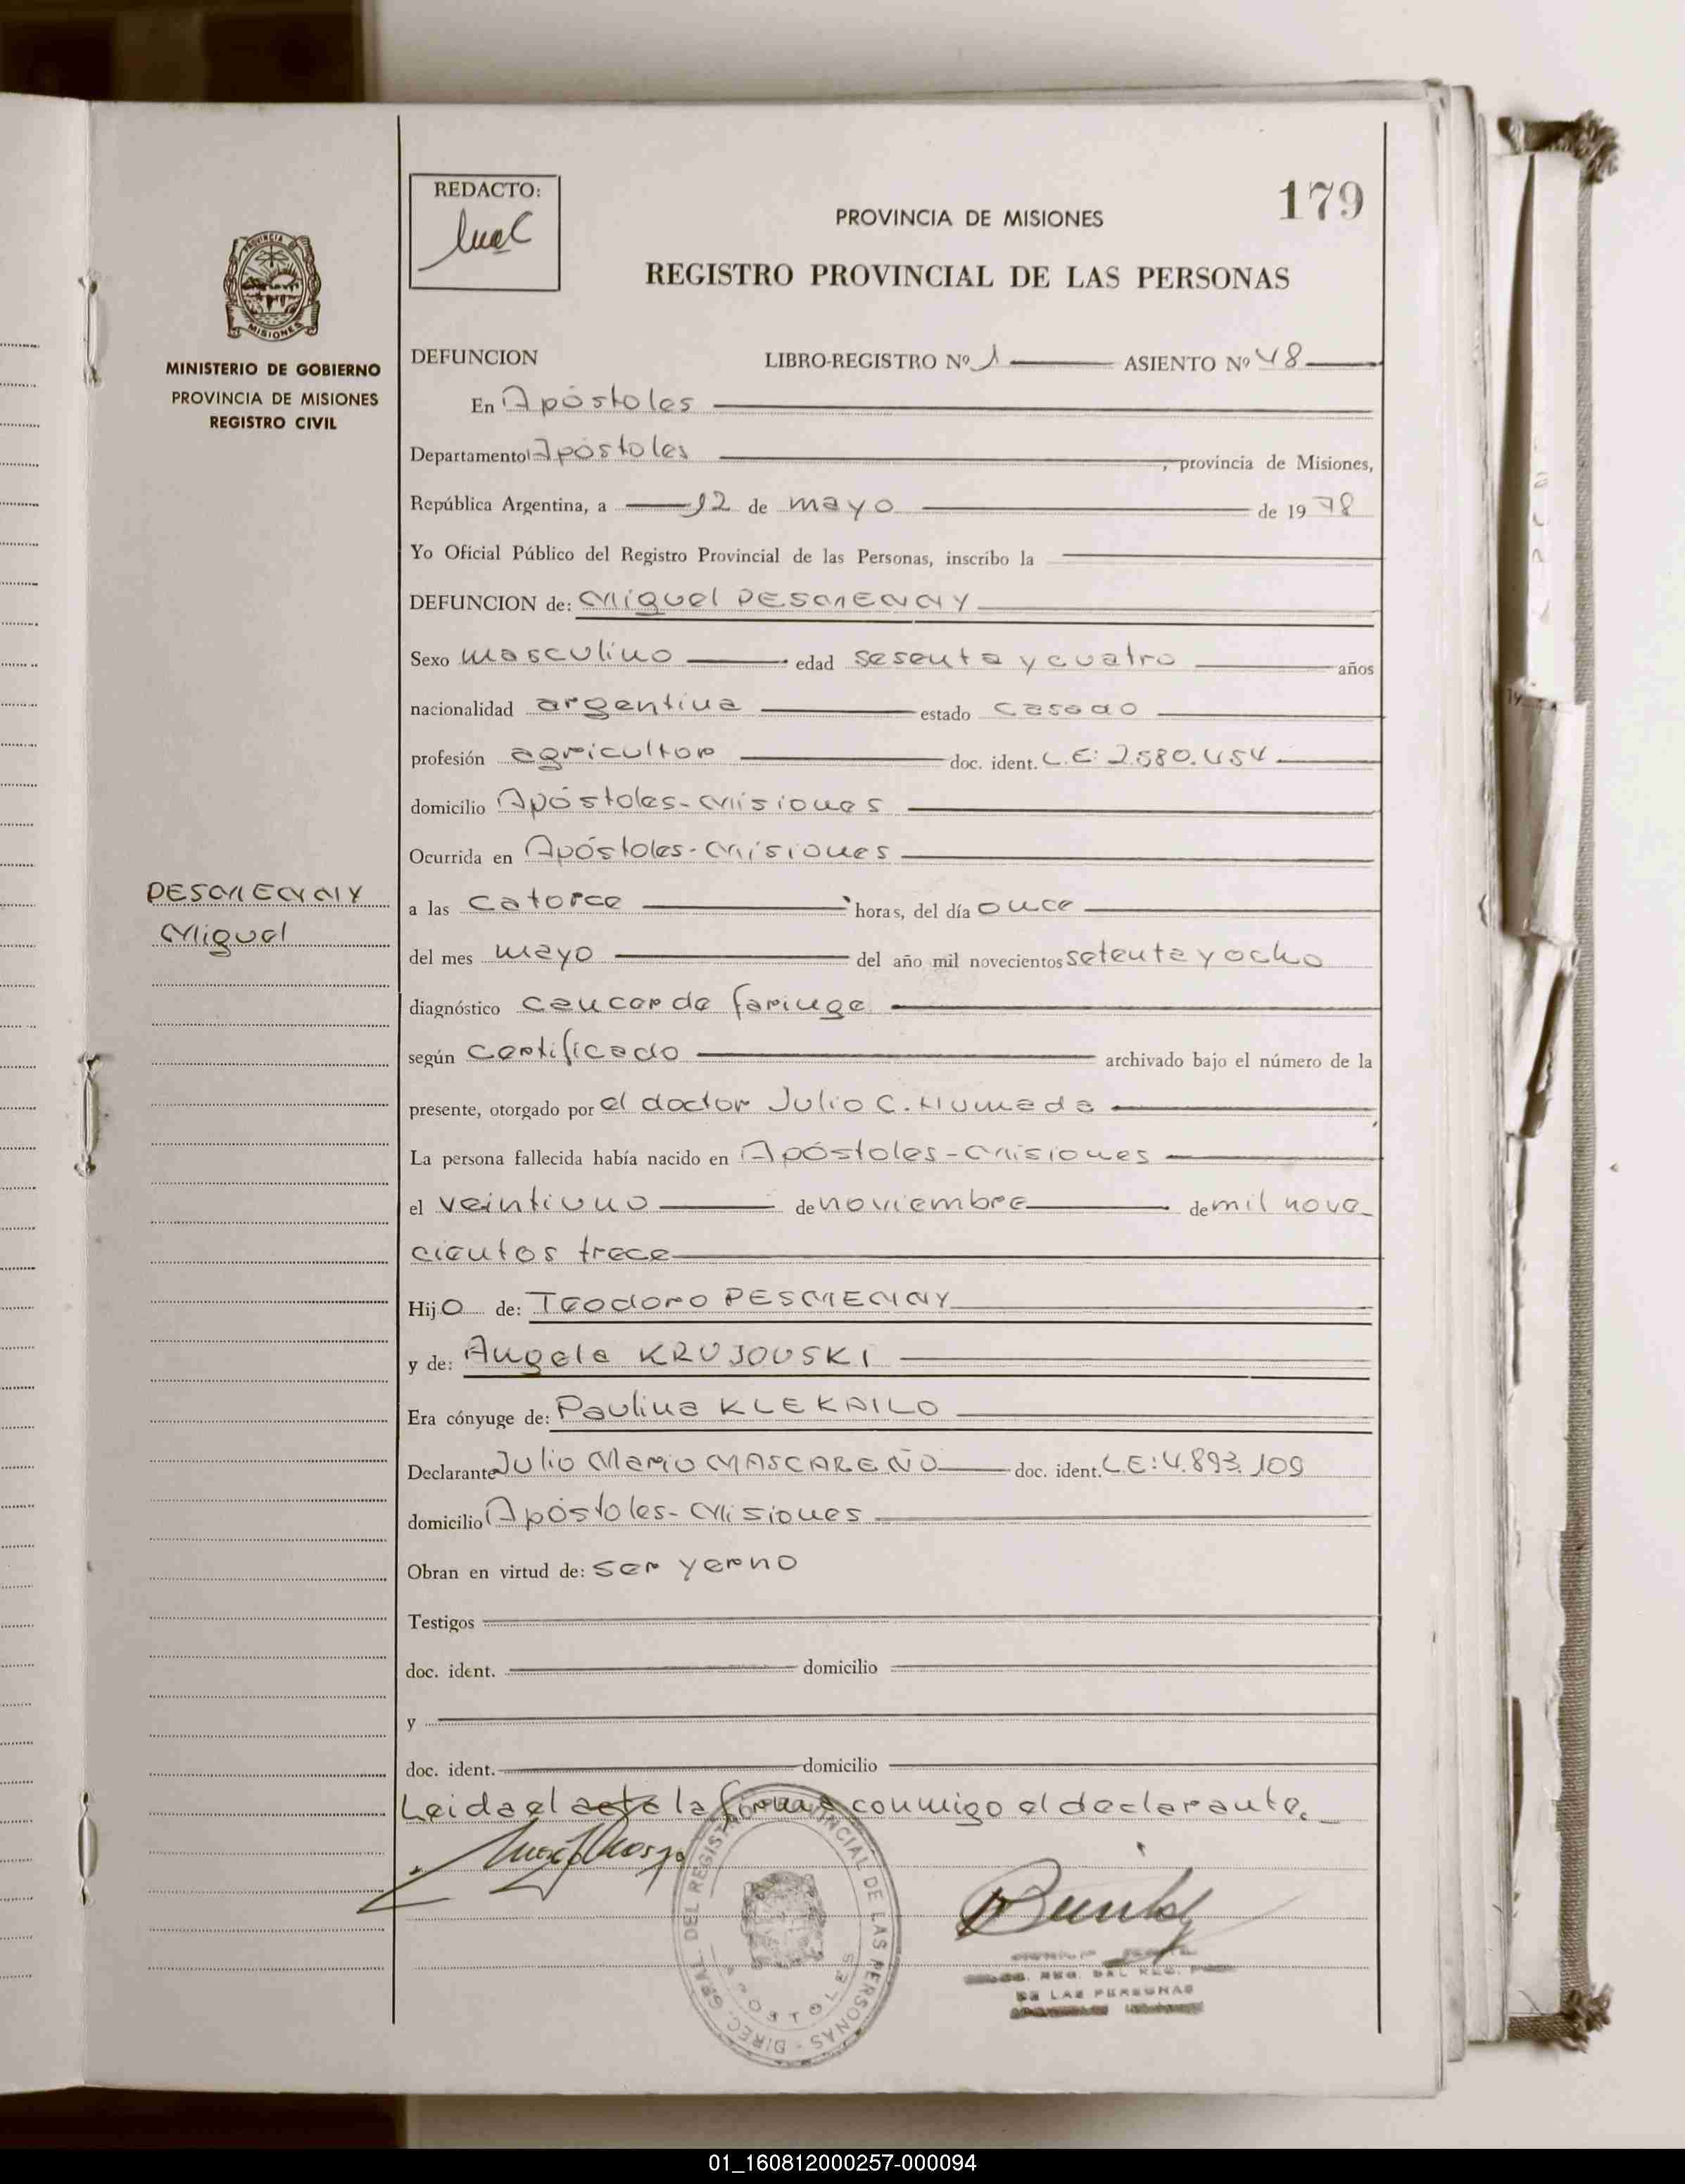 179
REDACTO:
PROVINCIA DE MISIONES
REGISTRO PROVINCIAL DE LAS PERSONAS
PROVINCIA DE
MISIONES
MINISTERIO DE GOBIERNO
PROVINCIA DE MISIONES
REGISTRO CIVIL
DEFUNCION LIBRO-REGISTRO Nº 1 ASIENTO Nº 48
En Apóstoles
Departamento Apóstoles, provincia de Misiones,
República Argentina, a 12 de mayo de 1978
Yo Oficial Público del Registro Provincial de las Personas, inscribo la
DEFUNCION de: Miguel PESMENNY
Sexo masculino edad sesenta y cuatro años
nacionalidad argentina estado casado
profesión agricultor doc. ident. L.E: 2.580.454
domicilio Apóstoles-Misiones
Ocurrida en Apóstoles-Misiones
PESMENNY
Miguel
a las catorce horas, del día once
del mes mayo del año mil novecientos setenta y ocho
diagnóstico cancer de faringe
según certificado archivado bajo el número de la
presente, otorgado por el doctor Julio C. Humada
La persona fallecida había nacido en Apóstoles-Misiones
el veintiuno de noviembre de mil nove-
cientos trece
Hijo de: Teodoro PESMENNY
y de: Angela KRUJOUSKI
Era cónyuge de: Paulina KLEKAILO
Declarante Julio Mario MASCAREÑO doc. ident. L.E: 4.893.109
domicilio Apóstoles-Misiones
Obran en virtud de: ser yerno
Testigos
doc. ident. domicilio
y
doc. ident. domicilio
Leida el acta la firma conmigo el declarante.
DIREC. GRAL. DEL REGISTRO PROVINCIAL DE LAS PERSONAS
APOSTOLES
DE LAS PERSONAS
01_160812000257-000094